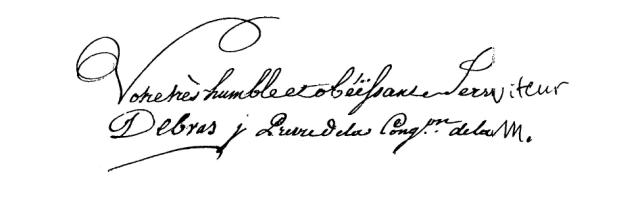 Votre très humble et obéissant Serviteur
Debras j Prêtre de la Cong.on de la M.